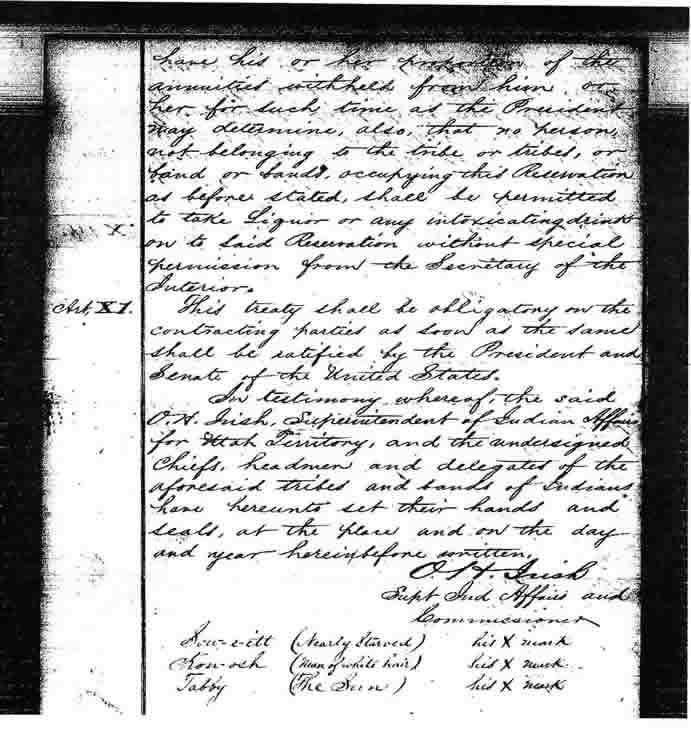 have his or her proportion of the
annuities withheld from him or
her for such time as the President
may determine, also, that no person,
not belonging to the tribe or tribes, or
band or bands, occupying this Reservation
as before stated, shall be permitted
to take Liquor or any intoxicating drink
X.
on to said Reservation without special
permission from the Secretary of the
Interior.
Art, XI.
This treaty shall be obligatory on the
contracting parties as soon as the same
shall be ratified by the President and
Senate of the United States.
In testimony whereof, the said
O. H. Irish, Superintendent of Indian Affairs
for Utah Territory, and the undersigned
Chiefs, headmen and delegates of the
aforesaid tribes and bands of Indians
have hereunto set their hands and
seals, at the place and on the day
and year hereinbefore written.
O. H. Irish
Supt Ind Affairs and
Commissioner
Sow-e-ett (Nearly Starved) his X mark
Kon-osh (Man of white hair) his X mark
Tabby (The Sun) his X mark